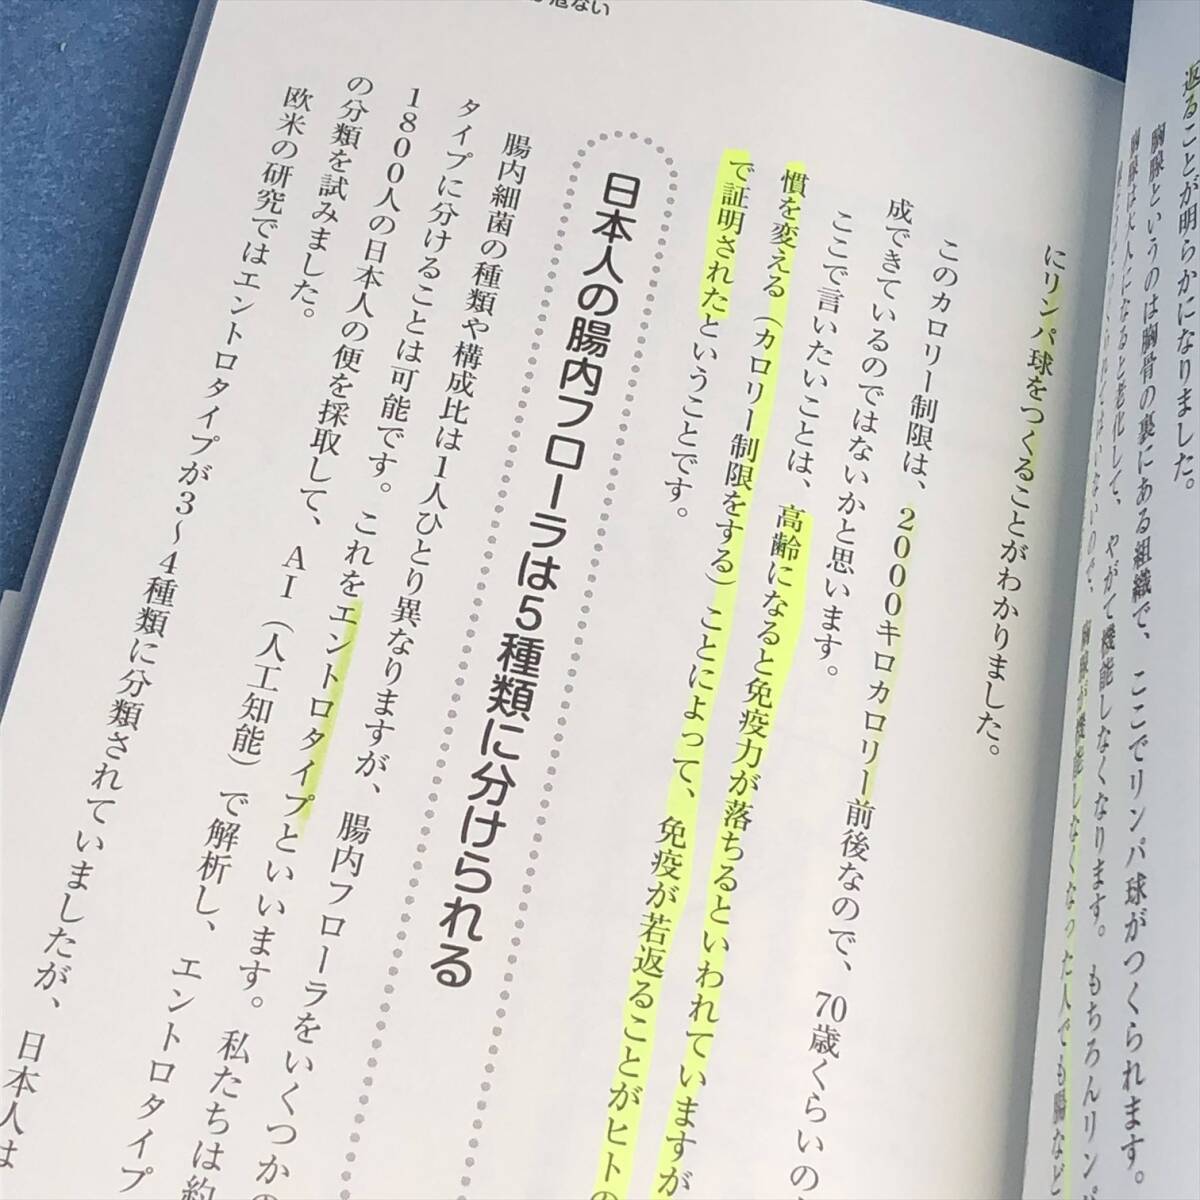 返ることが明らかになりました。
胸腺というのは胸骨の裏にある組織で、ここでリンパ球がつくられます。
胸腺は大人になると老化して、やがて機能しなくなります。もちろんリンパ
胸腺が機能しなくなった人でも腸など
にリンパ球をつくることがわかりました。
このカロリー制限は、2000キロカロリー前後なので、70歳くらいの
成できているのではないかと思います。
ここで言いたいことは、高齢になると免疫力が落ちるといわれていますが
慣を変える(カロリー制限をする)ことによって、免疫が若返ることがヒトの
で証明されたということです。
日本人の腸内フローラは5種類に分けられる
腸内細菌の種類や構成比は1人ひとり異なりますが、腸内フローラをいくつかの
タイプに分けることは可能です。これをエントロタイプといいます。私たちは約
1800人の日本人の便を採取して、AI(人工知能)で解析し、エントロタイプ
の分類を試みました。
欧米の研究ではエントロタイプが3〜4種類に分類されていましたが、日本人は
危ない